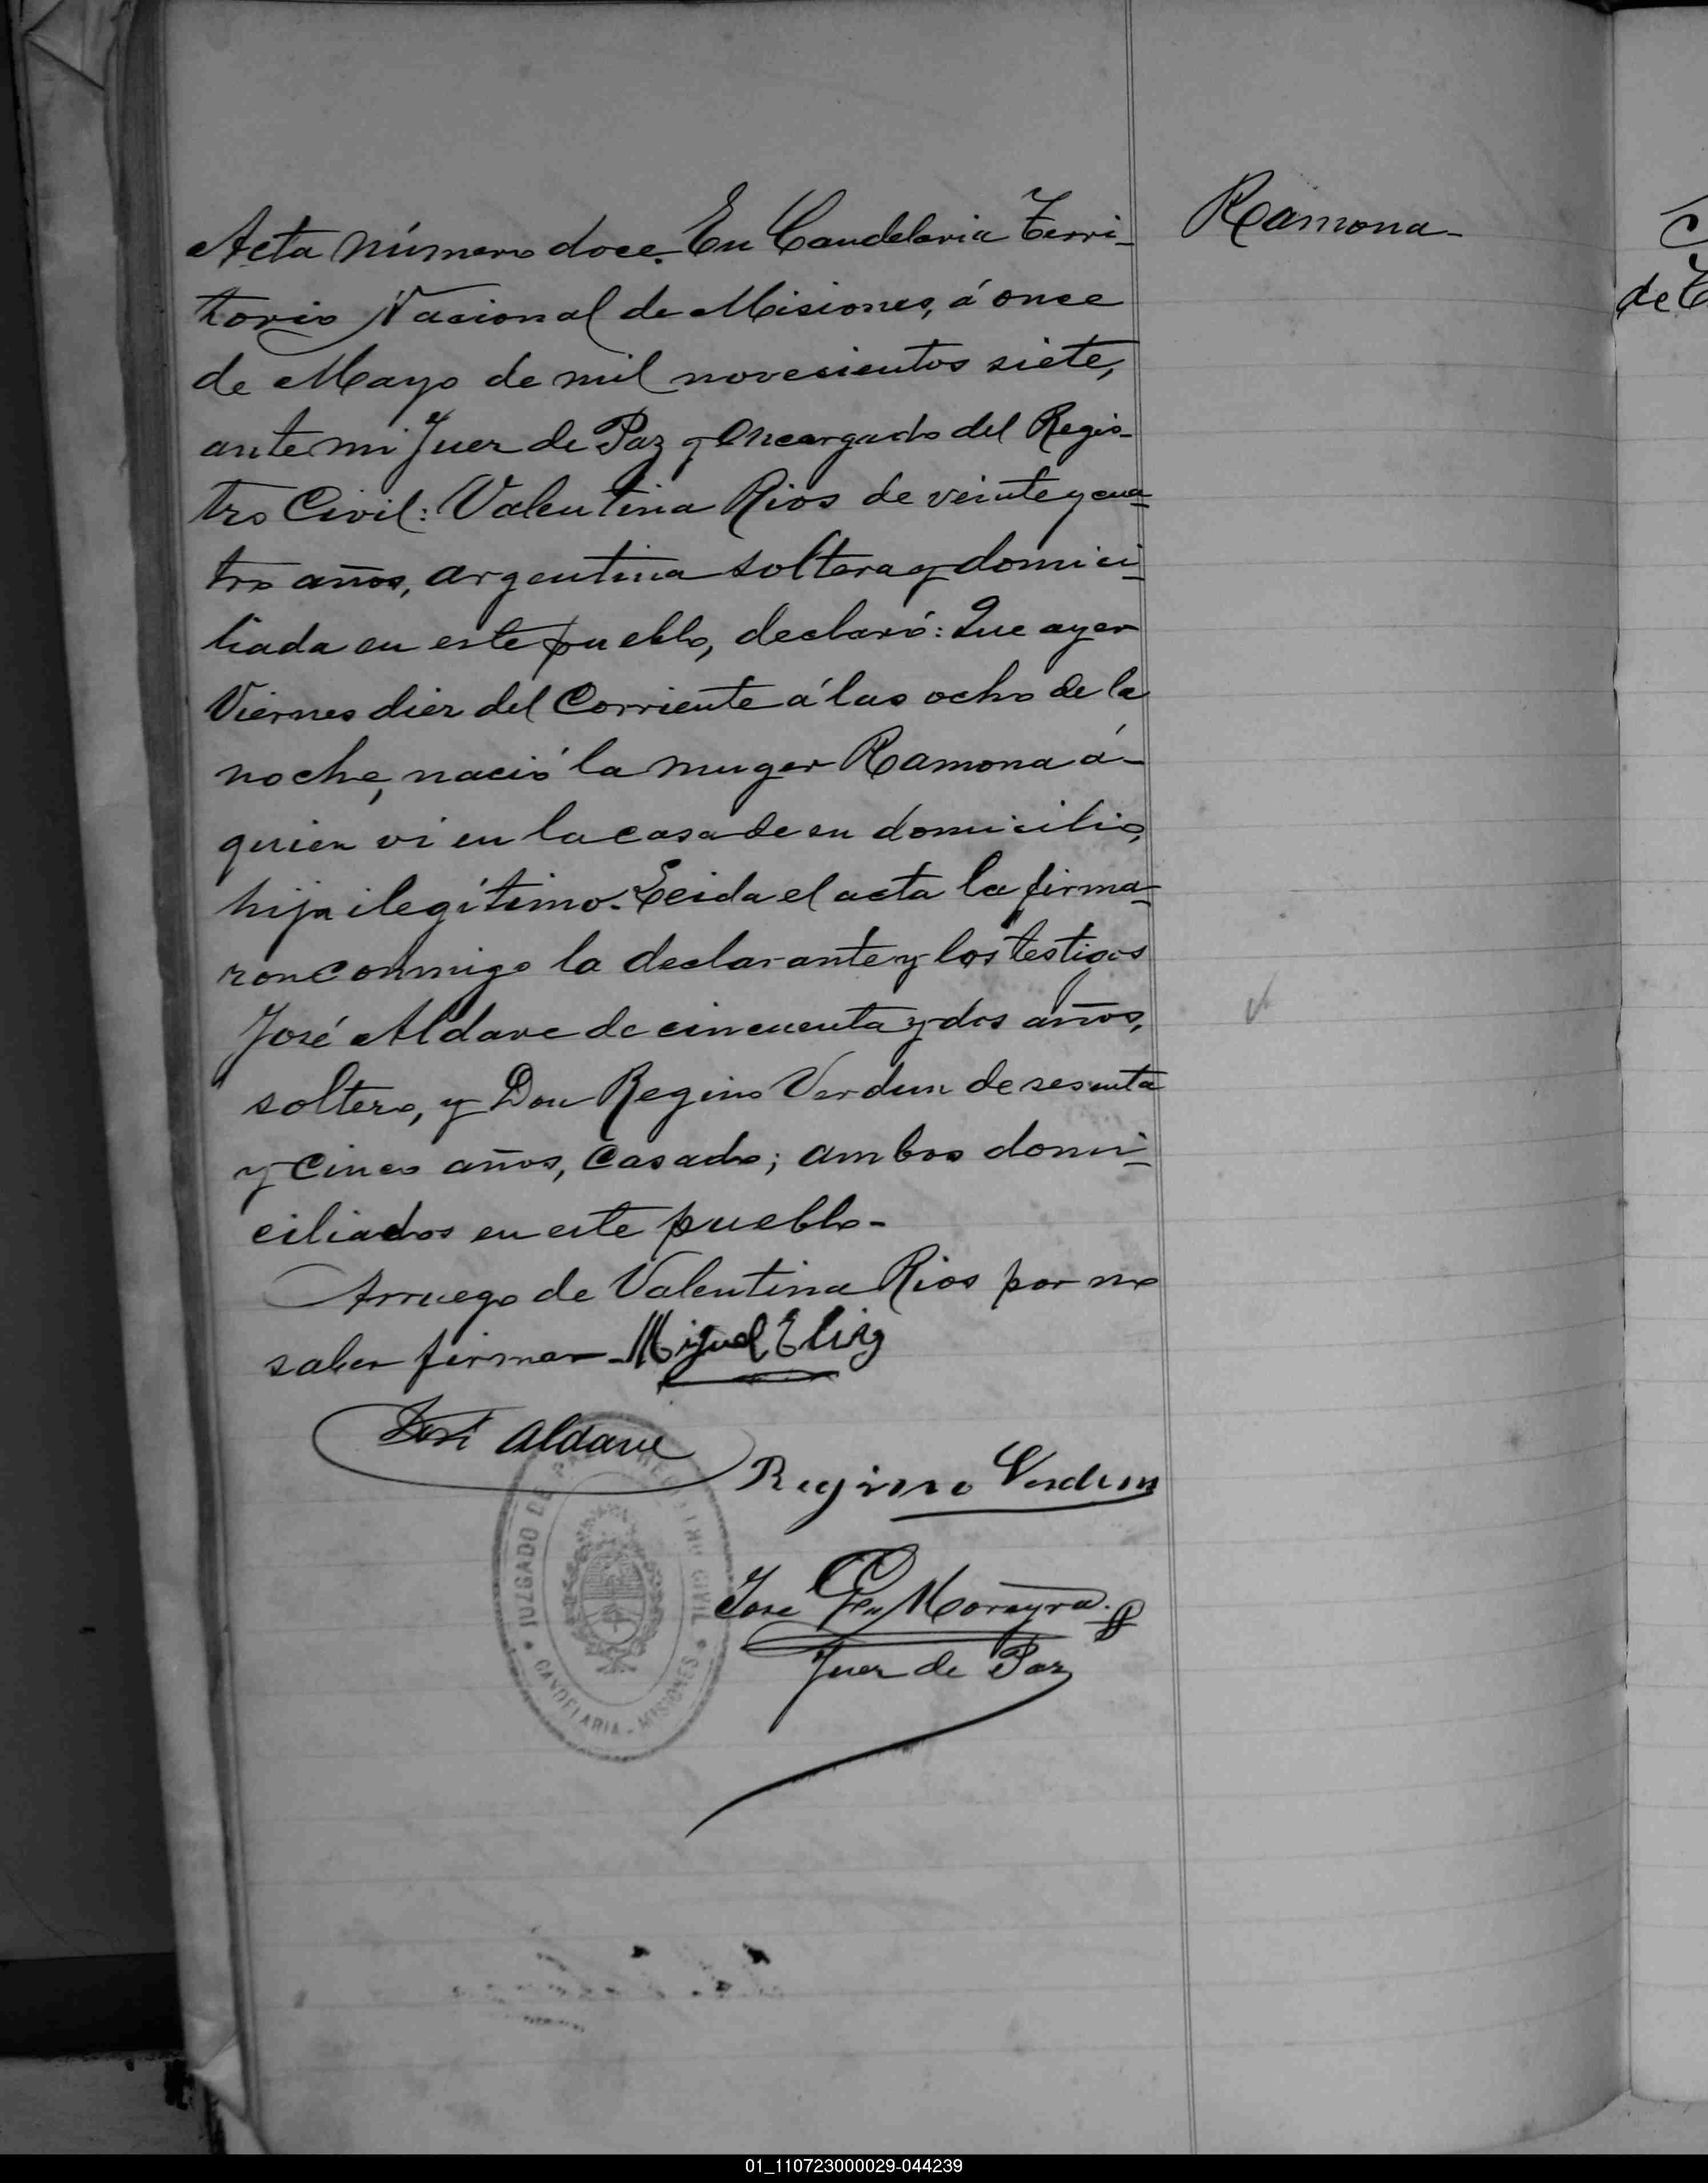 Acta número doce. En Candelaria Terri-
torio Nacional de Misiones, á once
de Mayo de mil novecientos siete,
ante mi Juez de Paz y Encargado del Regis-
tro Civil: Valentina Rios de veinte y cua-
tro años, argentina soltera y domici-
liada en este pueblo, declaró: Que ayer
Viernes diez del Corriente á las ocho de la
noche, nació la muger Ramona á-
quien vi en la casa de su domicilio,
hija ilegítimo. Leida el acta la firma-
ron conmigo la declarante y los testigos
José Aldave de cincuenta y dos años,
soltero, y Don Regino Verdun de sesenta
y cinco años, casado; ambos domi-
ciliados en este pueblo-
Arruego de Valentina Rios por no
saber firmar- Miguel
José Aldave
Regino Verdun
Jose Moreyra.
Juez de Paz
Ramona-
JUZGADO DE PAZ REGISTRO CIVIL
CANDELARIA - MISIONES
de
01_110723000029-044239